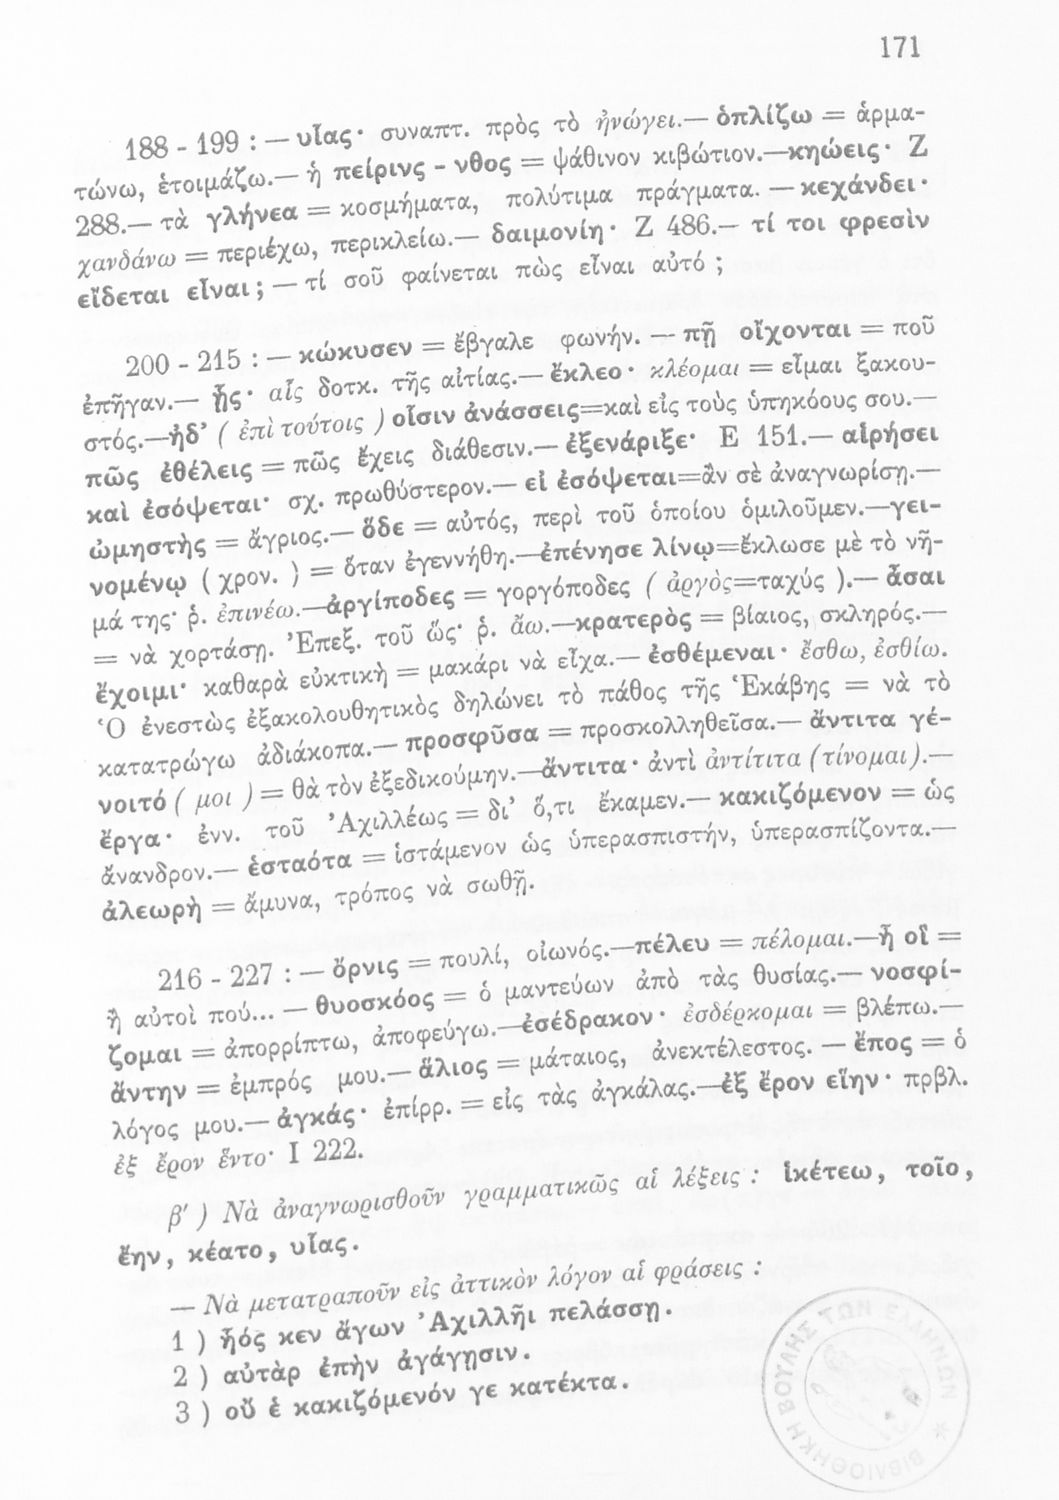 171
188 - 199 : — υἷας· συναπτ. πρὸς τὸ ἠνώγει.— ὁπλίζω = ἁρμα-
τώνω, ἑτοιμάζω.— ἡ πείρινς - νθος = ψάθινον κιβώτιον.—κηώεις· Ζ
288.— τὰ γλήνεα = κοσμήματα, πολύτιμα πράγματα. — κεχάνδει·
χανδάνω = περιέχω, περικλείω.— δαιμονίη· Ζ 486.— τί τοι φρεσὶν
εἴδεται εἶναι; — τί σοῦ φαίνεται πὼς εἶναι αὐτό ;
200 - 215 : — κώκυσεν = ἔβγαλε φωνήν. — πῇ οἴχονται = ποῦ
ἐπῆγαν.— ᾗς· αἷς δοτκ. τῆς αἰτίας.— ἔκλεο· κλέομαι = εἶμαι ξακου-
στός.—ἠδ’ ( ἐπὶ τούτοις ) οἷσιν ἀνάσσεις=καὶ εἰς τοὺς ὑπηκόους σου.—
πῶς ἐθέλεις = πῶς ἔχεις διάθεσιν.— ἐξενάριξε· Ε 151.— αἱρήσει
καὶ ἐσόψεται· σχ. πρωθύστερον.— εἰ ἐσόψεται=ἂν σὲ ἀναγνωρίσῃ.—
ὠμηστὴς = ἄγριος.— ὅδε = αὐτός, περὶ τοῦ ὁποίου ὁμιλοῦμεν.—γει-
νομένῳ ( χρον. ) = ὅταν ἐγεννήθη.—ἐπένησε λίνῳ=ἔκλωσε μὲ τὸ νῆ-
μά της· ῥ. ἐπινέω.—ἀργίποδες = γοργόποδες ( ἀργὸς=ταχύς ).— ἆσαι
= νὰ χορτάσῃ. Ἐπεξ. τοῦ ὥς· ῥ. ἄω.—κρατερὸς = βίαιος, σκληρός.—
ἔχοιμι· καθαρὰ εὐκτικὴ = μακάρι νὰ εἶχα.— ἐσθέμεναι· ἔσθω, ἐσθίω.
Ὁ ἐνεστὼς ἐξακολουθητικὸς δηλώνει τὸ πάθος τῆς Ἑκάβης = νὰ τὸ
κατατρώγω ἀδιάκοπα.— προσφῦσα = προσκολληθεῖσα.— ἄντιτα γέ-
νοιτό ( μοι ) = θὰ τὸν ἐξεδικούμην.—ἄντιτα· ἀντὶ ἀντίτιτα (τίνομαι).—
ἔργα· ἐνν. τοῦ Ἀχιλλέως = δι’ ὅ,τι ἔκαμεν.— κακιζόμενον = ὡς
ἄνανδρον.— ἑσταότα = ἱστάμενον ὡς ὑπερασπιστήν, ὑπερασπίζοντα.—
ἀλεωρὴ = ἄμυνα, τρόπος νὰ σωθῇ.
216 - 227 : — ὄρνις = πουλί, οἰωνός.—πέλευ = πέλομαι.—ἢ οἳ =
ἢ αὐτοὶ πού... — θυοσκόος = ὁ μαντεύων ἀπὸ τὰς θυσίας.— νοσφί-
ζομαι = ἀπορρίπτω, ἀποφεύγω.—ἐσέδρακον· ἐσδέρκομαι = βλέπω.—
ἄντην = ἐμπρός μου.— ἅλιος = μάταιος, ἀνεκτέλεστος. — ἔπος = ὁ
λόγος μου.— ἀγκάς· ἐπίρρ. = εἰς τὰς ἀγκάλας.—ἐξ ἔρον εἵην· πρβλ.
ἐξ ἔρον ἕντο· Ι 222.
β′ ) Νὰ ἀναγνωρισθοῦν γραμματικῶς αἱ λέξεις : ἱκέτεω, τοῖο,
ἔην, κέατο, υἷας.
— Νὰ μετατραποῦν εἰς ἀττικὸν λόγον αἱ φράσεις :
1 ) ἧός κεν ἄγων Ἀχιλλῆι πελάσσῃ.
2 ) αὐτὰρ ἐπὴν ἀγάγῃσιν.
3 ) οὔ ἑ κακιζόμενόν γε κατέκτα.
ΒΙΒΛΙΟΘΗΚΗ ΒΟΥΛΗΣ ΤΩΝ ΕΛΛΗΝΩΝ